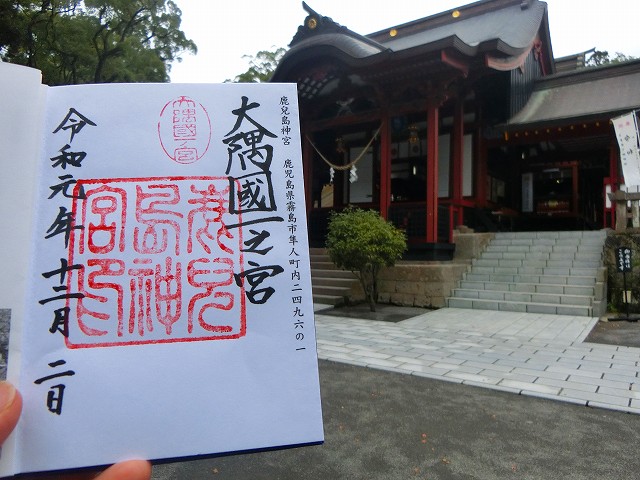 鹿兒島神宮　鹿児島県霧島市隼人町内二四九六の一
大隅國一之宮
大隅國一之宮
鹿兒島神宮印
令和元年十二月二日